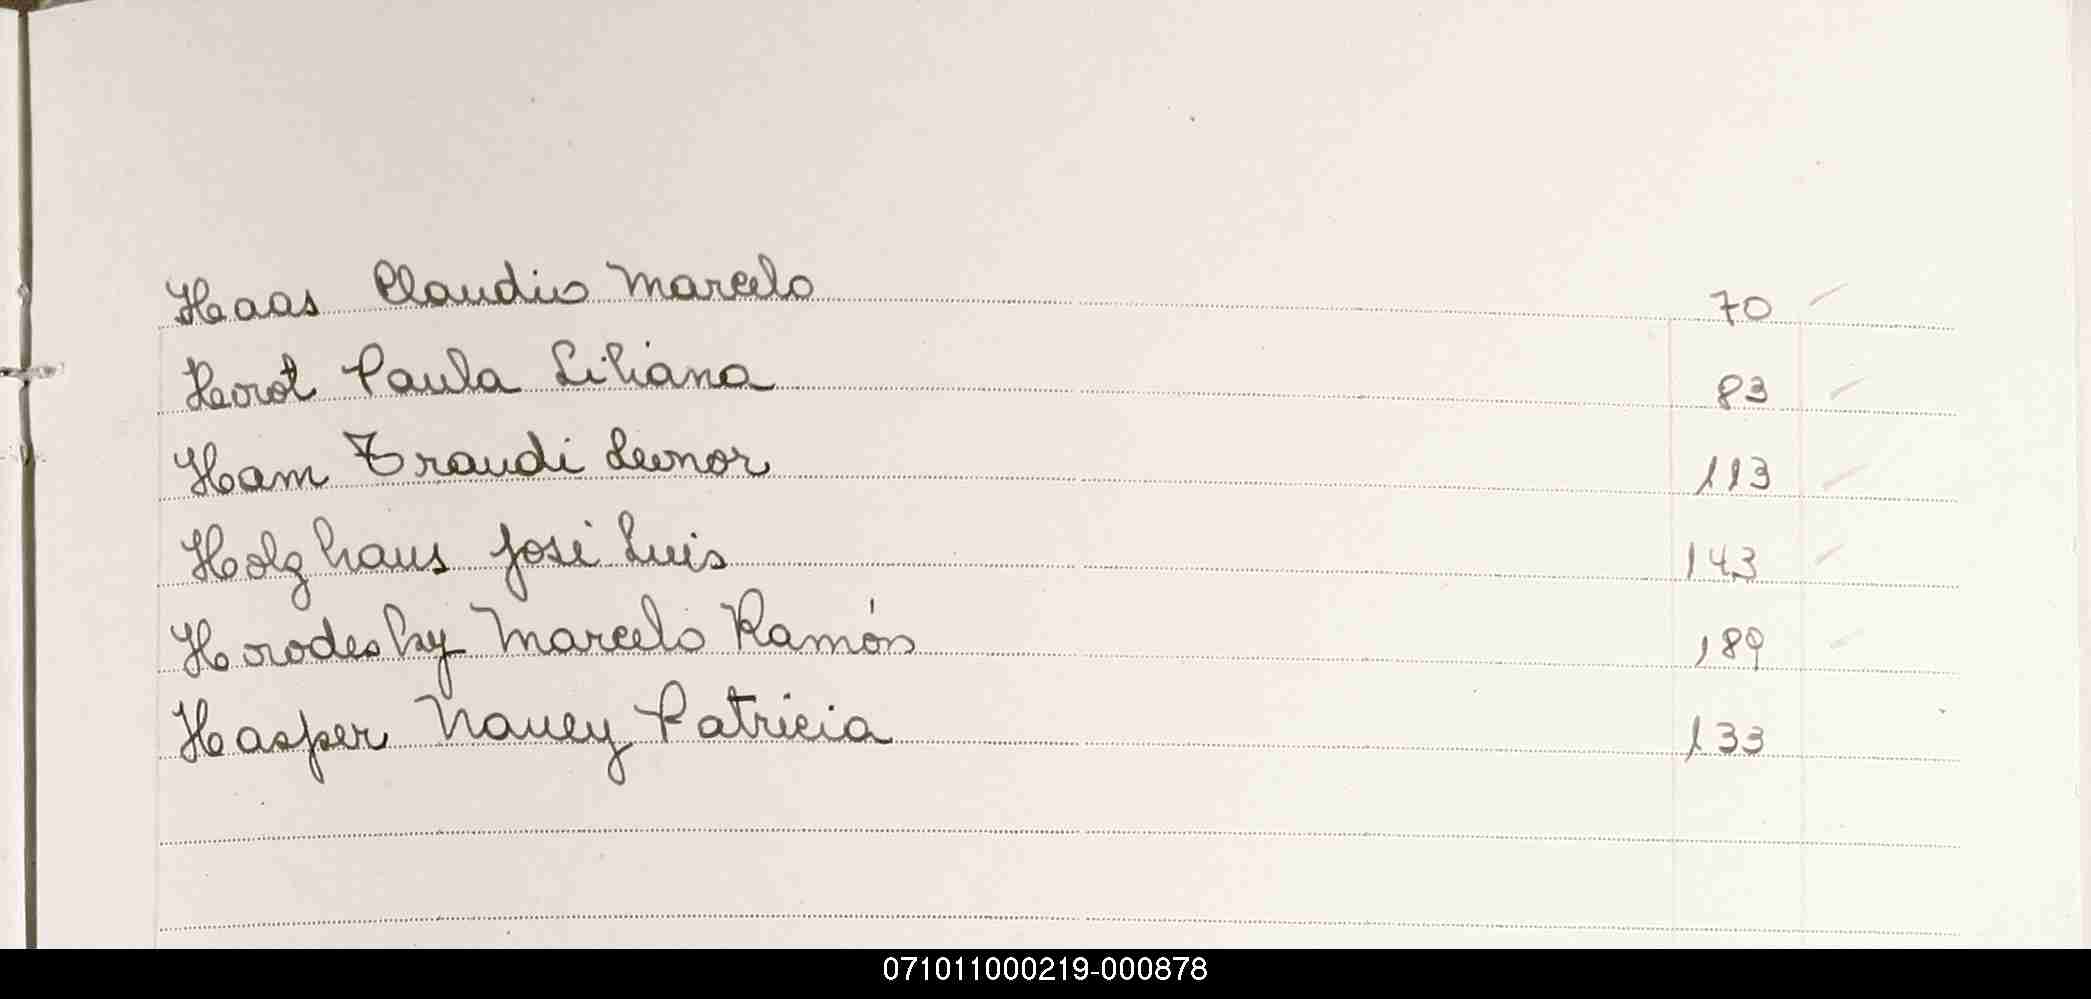 Haas Claudio Marcelo 70
Herot Paula Liliana 83
Ham Traudi Leonor 113
Holzhaus José Luis 143
Horodesky Marcelo Ramón 189
Hasper Nancy Patricia 133
071011000219-000878